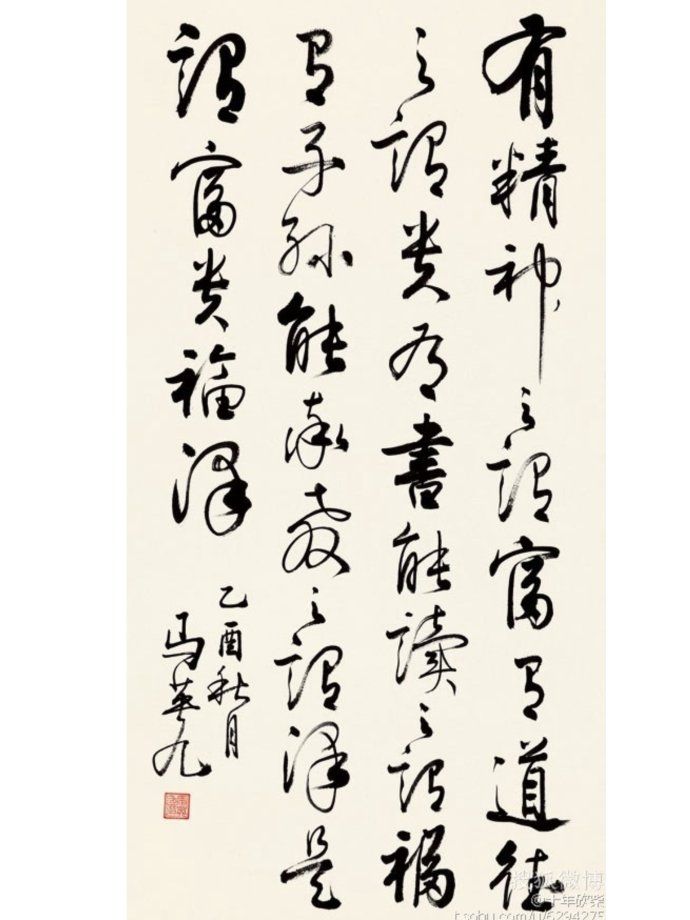 有精神之謂富有道德
之謂貴有書能讀之謂福
有子孫能承教之謂澤是
謂富貴福澤
乙酉秋月
馬英九
搜狐微博
@十年砍柴